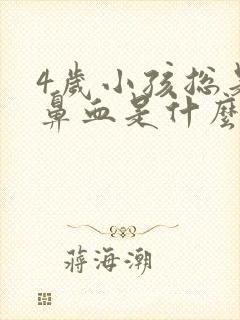 4歲小孩總是
鼻血是什麼
蔣海潮